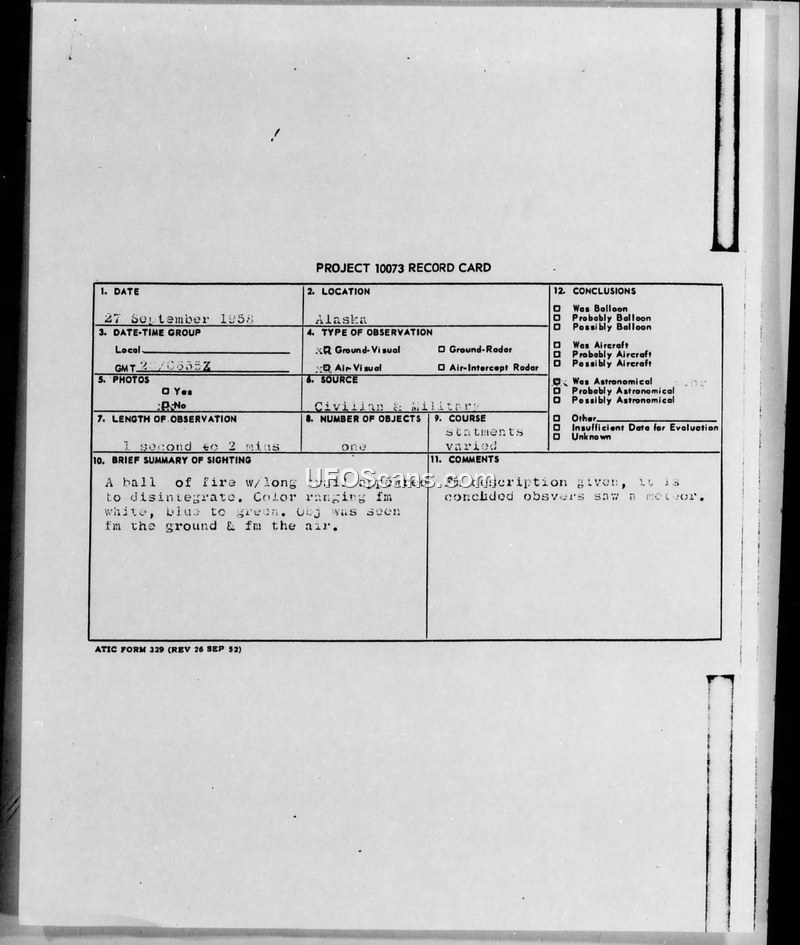 PROJECT 10073 RECORD CARD
1. DATE
27 September 1958
2. LOCATION
Alaska
3. DATE-TIME GROUP
Local
GMT
4. TYPE OF OBSERVATION
Ground-Visual Ground-Radar
Air-Visual Air-Intercept Radar
5. PHOTOS
Yes
No
6. SOURCE
Civilian & Military
7. LENGTH OF OBSERVATION
1 second to 2 mins
8. NUMBER OF OBJECTS
one
9. COURSE
statments
varied
10. BRIEF SUMMARY OF SIGHTING
A ball of fire w/long tail appeared
to disintegrate. Color ranging fm
white, blue to green. Obj was seen
fm the ground & fm the air.
11. COMMENTS
Fm description given, it is
concluded obsvers saw a meteor.
12. CONCLUSIONS
Was Balloon
Probably Balloon
Possibly Balloon
Was Aircraft
Probably Aircraft
Possibly Aircraft
Was Astronomical
Probably Astronomical
Possibly Astronomical
Other
Insufficient Data for Evaluation
Unknown
UFOScans.com
ATIC FORM 329 (REV 26 SEP 52)